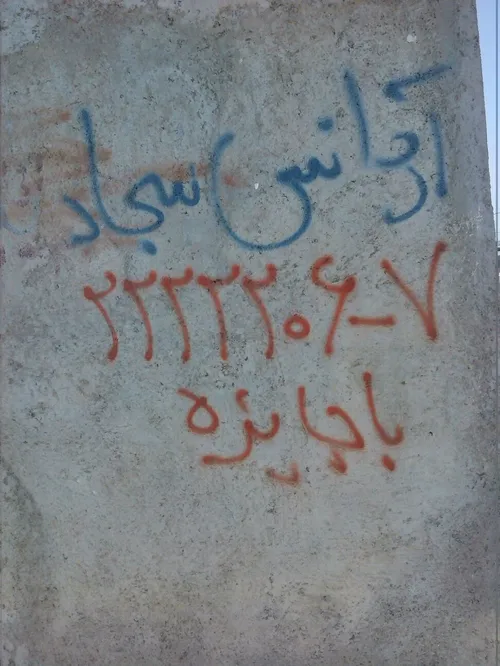 آژانس سجاد
۲۲۲۲۲۰۶-۷
با جایزه